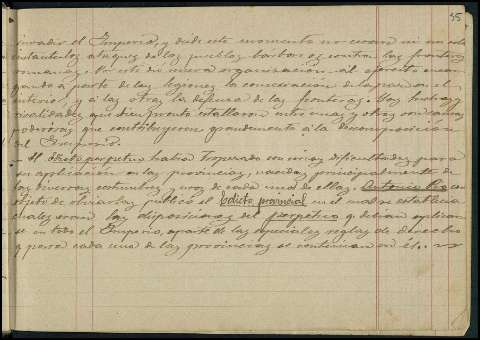 35
invadir el Imperio, y desde este momento no cesaron ni un solo
instante los ataques de los pueblos bárbaros contra las fronteras
romanas. Por esto dió nueva organización al ejército encar
gando á parte de las legiones la conservación de la paz en el
interior, y á las otras la defensa de las fronteras. Las luchas y
rivalidades que bien pronto estallaron entre unas y otras son causas
poderosas que contribuyeron grandemente á la descomposición
del Imperio.
- El Edicto perpetuo había tropezado con varias dificultades para
su aplicación en las provincias, nacidas principalmente de
las diversas costumbres y usos de cada una de ellas. Antonino Pío con
objeto de obviarlas publicó el Edicto provincial en el cual se establecía
cuales eran las disposiciones del perpetuo que debían aplicar
se en todo el Imperio, aparte de las especiales reglas de derecho
que para cada una de las provincias se contenían en él.